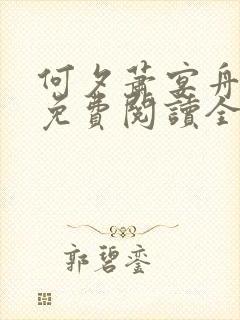 何夕萧宴舟
免費閱讀全
郭碧銮